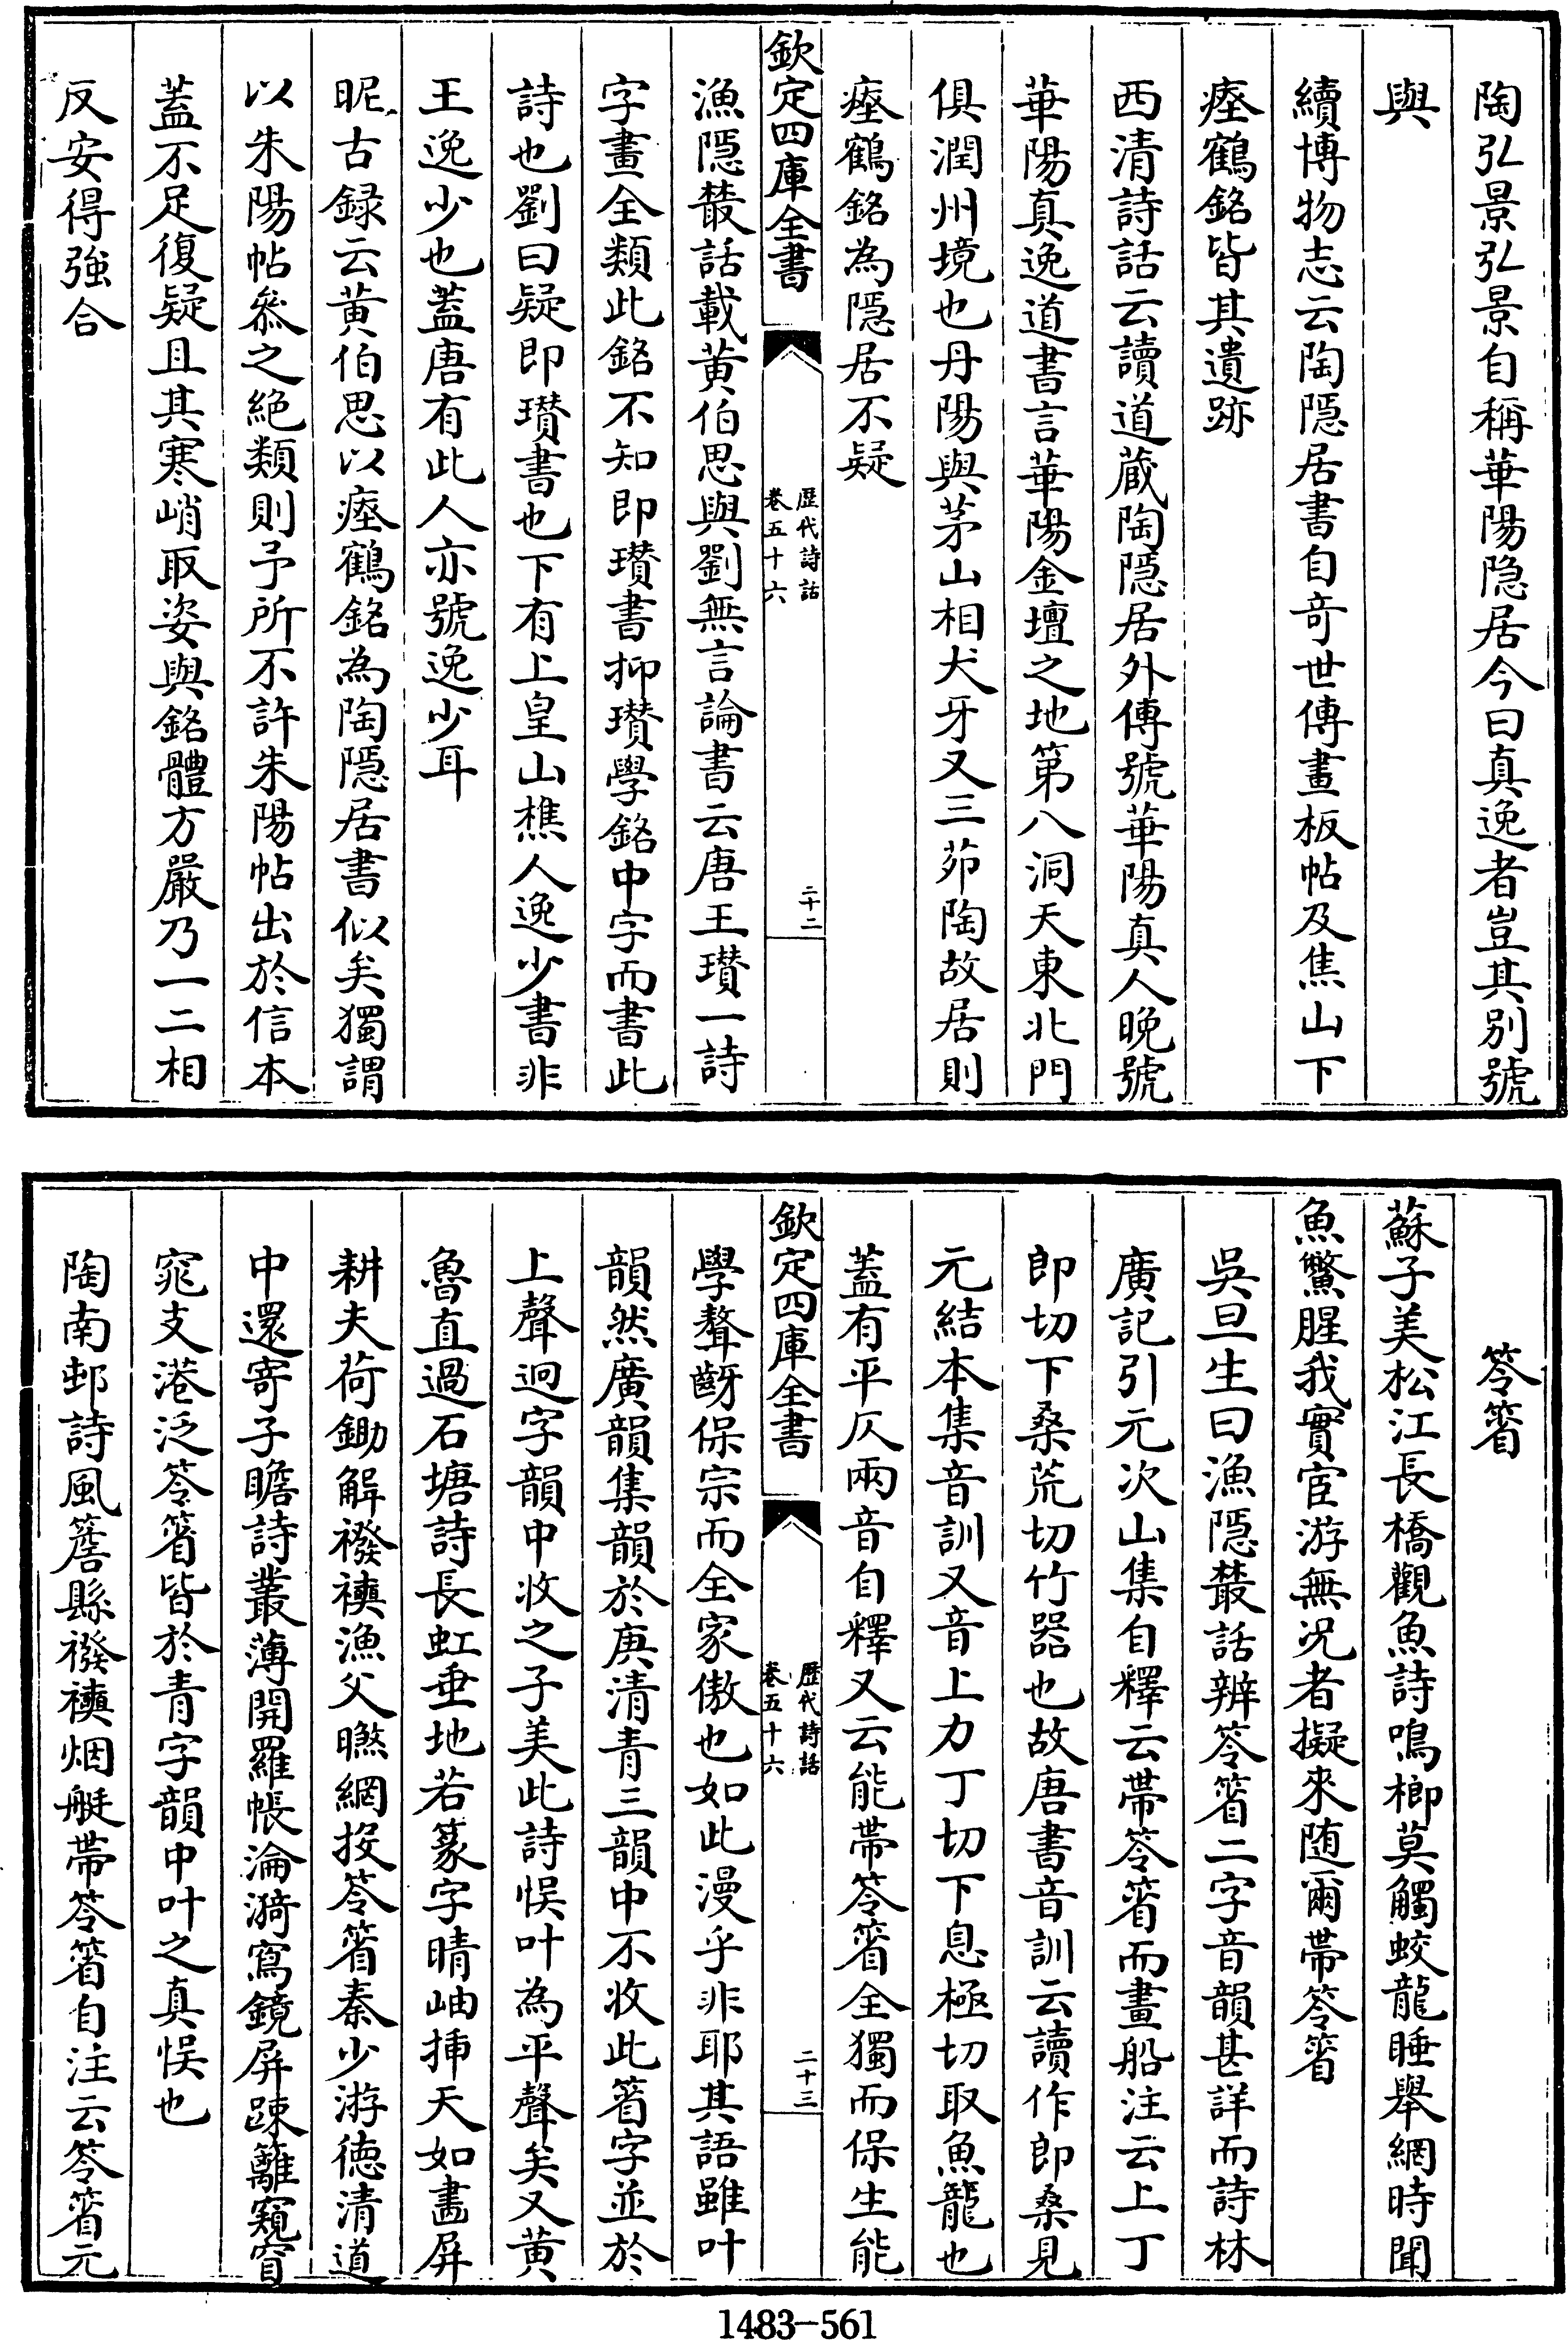 陶弘景弘景自稱華陽隐居今曰真逸者豈其别號
與
續博物志云陶隠居書自奇世傳畫板帖及焦山下
瘞鶴銘皆其遺跡
西清詩話云讀道藏陶隠居外傳號華陽真人晚號
華陽真逸道書言華陽金壇之地第八洞天東北門
俱潤州境也丹陽與茅山相犬牙又三茆陶故居則
瘞鶴銘為隠居不疑
欽定四庫全書
歴代詩話
卷五十六
二十二
漁隠叢話載黄伯思與劉無言論書云唐王瓚一詩
字畫全類此銘不知即瓚書抑瓚學銘中字而書此
詩也劉曰疑即瓚書也下有上皇山樵人逸少書非
王逸少也蓋唐有此人亦號逸少耳
昵古録云黄伯思以瘞鶴銘為陶隠居書似矣獨謂
以朱陽帖叅之絶類則予所不許朱陽帖出於信本
蓋不足復疑且其寒峭取姿與銘體方嚴乃一二相
反安得強合
笭箵
蘇子美松江長橋觀魚詩鳴榔莫觸蛟龍睡舉網時聞
魚鱉腥我實宦游無况者擬來随爾帶笭箵
吳旦生曰漁隠叢話辨笭箵二字音韻甚詳而詩林
廣記引元次山集自釋云帶笭箵而畫船注云上丁
即切下桑荒切竹器也故唐書音訓云讀作郎桑見
元結本集音訓又音上力丁切下息極切取魚籠也
蓋有平仄兩音自釋又云能帶笭箵全獨而保生能
欽定四庫全書
歴代詩話
卷五十六
二十三
學聱齖保宗而全家傲也如此漫乎非耶其語雖叶
韻然廣韻集韻於庚清青三韻中不收此箵字並於
上聲迥字韻中收之子美此詩悞叶為平聲矣又黄
魯直過石塘詩長虹垂地若篆字晴岫揷天如畵屏
耕夫荷鋤解襏襫漁父曝網投笭箵秦少游徳清道
中還寄子瞻詩叢薄開羅帳淪漪寫鏡屏踈籬窺窅
窕支港泛笭箵皆於青字韻中叶之真悞也
陶南邨詩風簷縣襏襫烟艇帶笭箵自注云笭箵元
1483-561